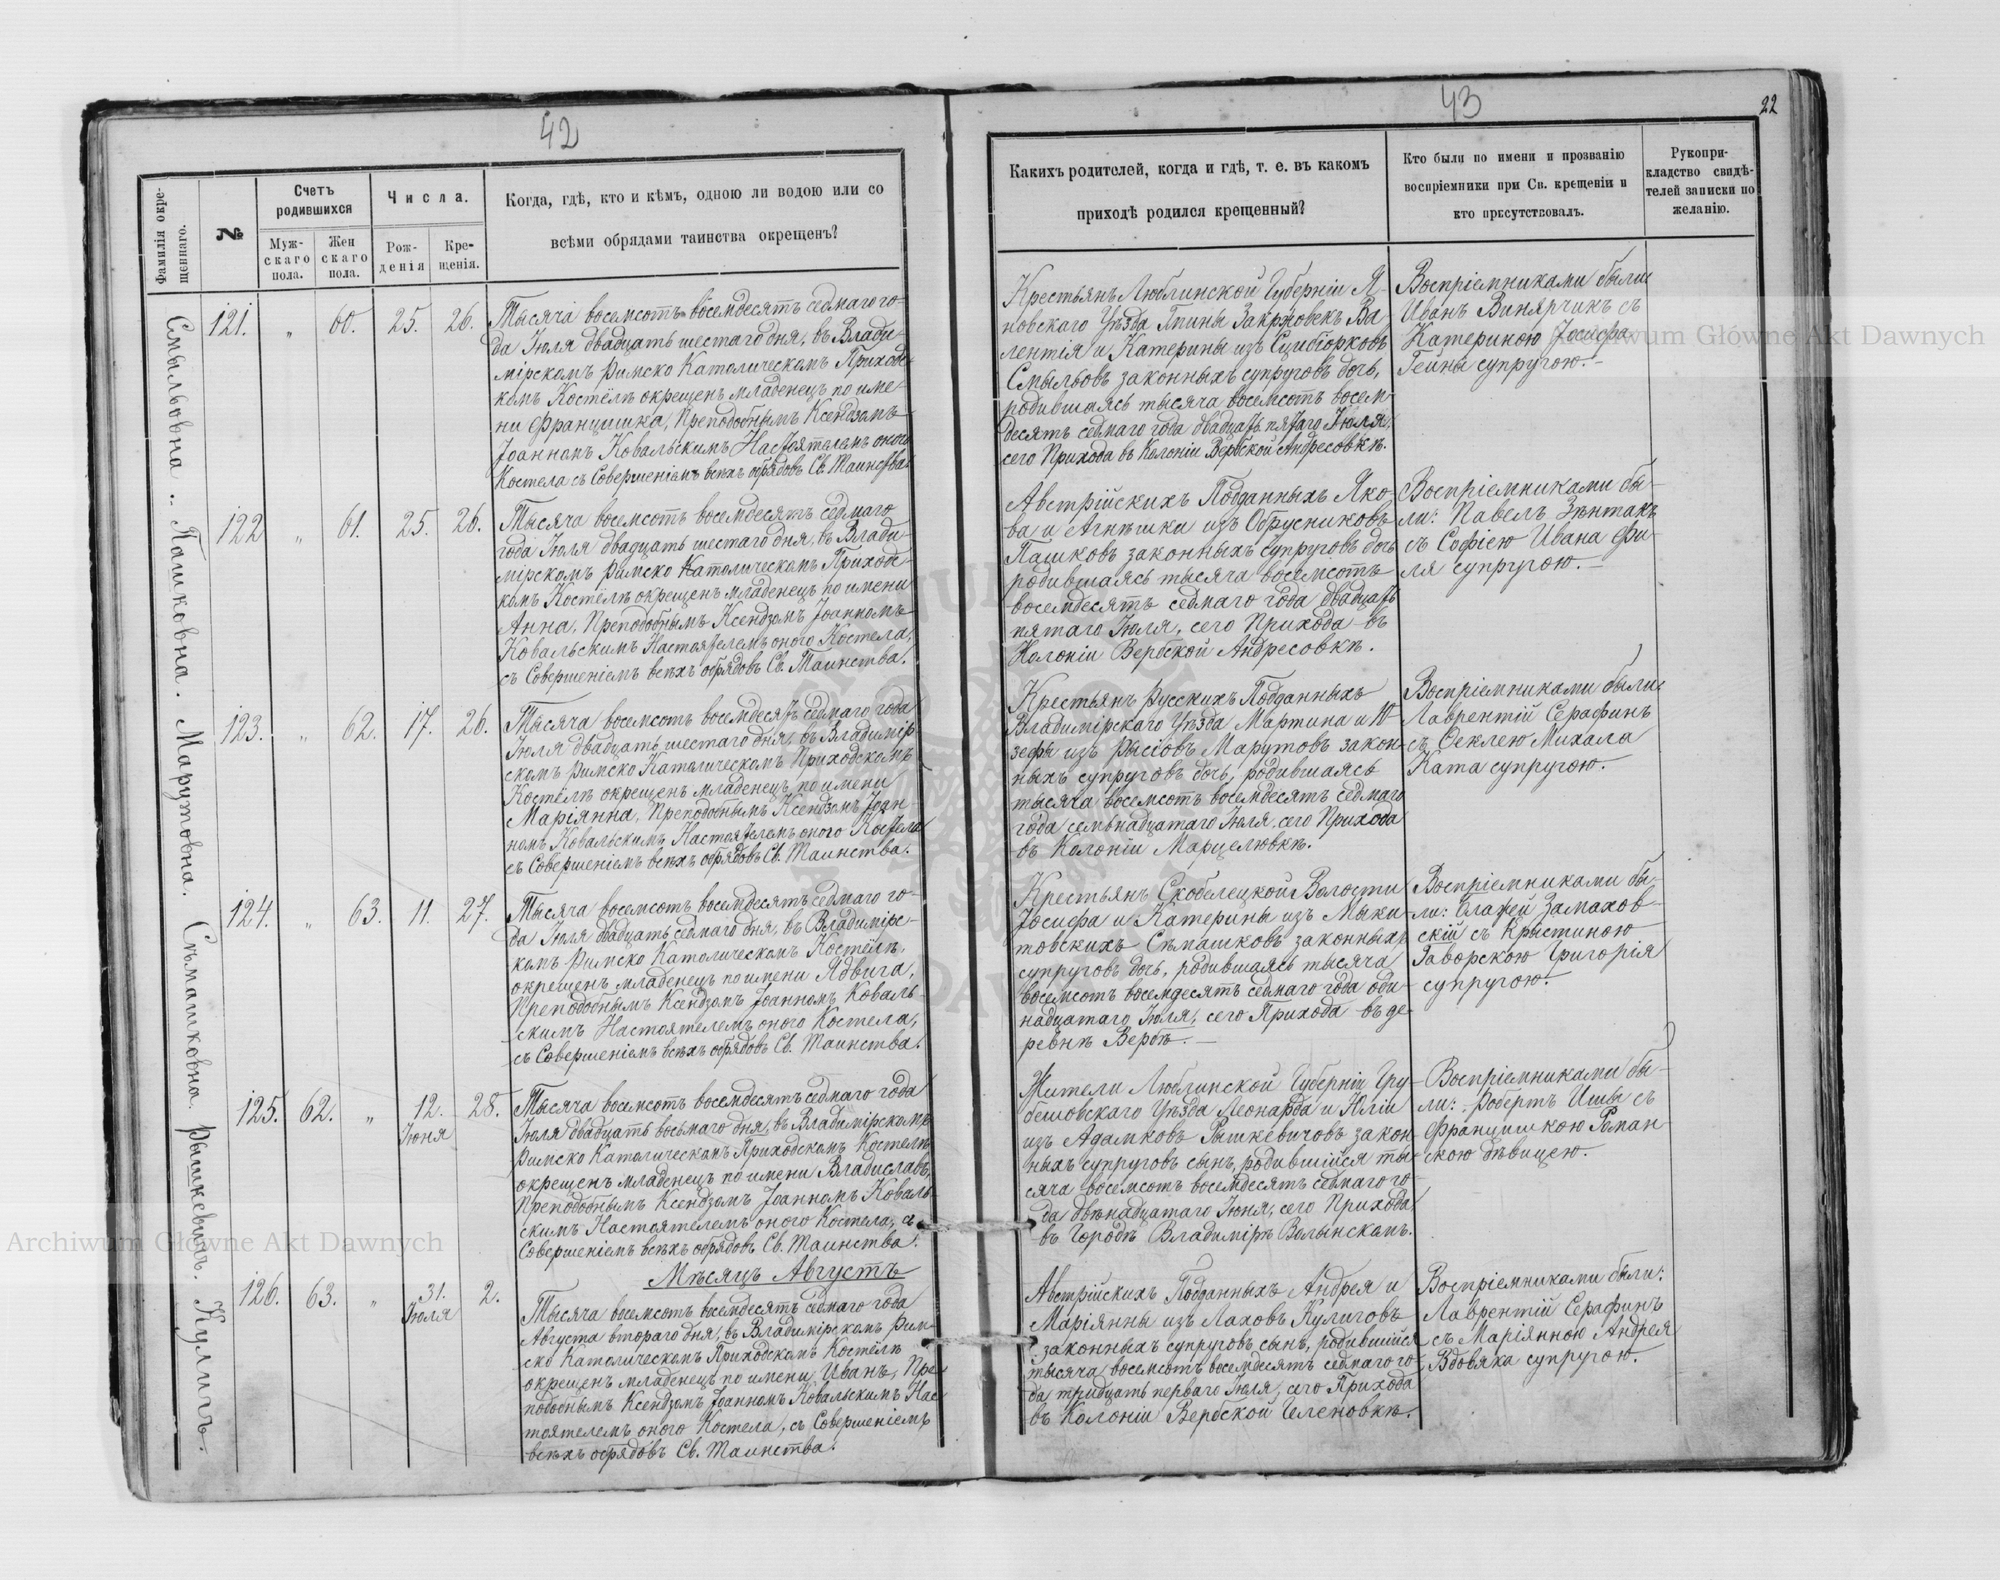 42
Фамилія окре-
щеннаго.
№
Счетъ
родившихся
Муж-
скаго
пола.
Жен
скаго
пола.
Числа.
Рож-
денія
Кре-
щенія.
Когда, гдѣ, кто и кѣмъ, одною ли водою или со
всѣми обрядами таинства окрещенъ?
Смыльовна.. Пашковна. Марутовна. Сѣмашковна. Рышкевичъ. Кулигъ.
121. " 60. 25. 26.
Тысяча восемсотъ восемдесятъ седмаго го-
да Іюля двадцать шестаго дня, въ Влади
мірскомъ Римско Католическомъ Приход-
комъ Костелѣ окрещенъ младенецъ по име-
ни Францишка, Преподобнымъ Ксендзомъ
Іоанномъ Ковальскимъ Настоятелемъ оного
Костела съ Совершеніемъ всѣхъ обрядовъ Св. Таинства.
122 " 61. 25. 26.
Тысяча восемсотъ восемдесятъ седмаго
года Іюля двадцать шестаго дня, въ Влади-
мірскомъ Римско Католическомъ Приход-
комъ Костелѣ окрещенъ младенецъ по имени
Анна, Преподобнымъ Ксендзомъ Іоанномъ
Ковальскимъ Настоятелемъ оного Костела,
съ Совершеніемъ всѣхъ обрядовъ Св. Таинства.
123. " 62. 17. 26.
Тысяча восемсотъ восемдесятъ седмаго года
Іюля двадцать шестаго дня, въ Владимір
скомъ Римско Католическомъ Приходскомъ
Костелѣ окрещенъ младенецъ по имени
Маріянна, Преподобнымъ Ксендзомъ Іоан-
номъ Ковальскимъ Настоятелемъ оного Костела
съ Совершеніемъ всѣхъ обрядовъ Св. Таинства.
124. " 63. 11. 27.
Тысяча восемсотъ восемдесятъ седмаго го-
да Іюля двадцать седмаго дня, въ Владимірс-
комъ Римско Католическомъ Костелѣ,
окрещенъ младенецъ по имени Ядвига,
Преподобнымъ Ксендзомъ Іоанномъ Коваль-
скимъ Настоятелемъ оного Костела,
съ Совершеніемъ всѣхъ обрядовъ Св. Таинства.
125. 62. " 12. Іюня 28.
Тысяча восемсотъ восемдесятъ седмаго года
Іюля двадцать восьмаго дня, въ Владимірскомъ
Римско Католическомъ Приходскомъ Костелѣ,
окрещенъ младенецъ по имени Владиславъ,
Преподобнымъ Ксендзомъ Іоанномъ Коваль-
скимъ Настоятелемъ оного Костела, съ
Совершеніемъ всѣхъ обрядовъ Св. Таинства.
Мѣсяцъ Августъ
126. 63. " 31. Іюля 2.
Тысяча восемсотъ восемдесятъ седмаго года
Августа втораго дня, въ Владимірскомъ Рим-
ско Католическомъ Приходскомъ Костелѣ
окрещенъ младенецъ по имени Иванъ, Пре
подобнымъ Ксендзомъ Іоанномъ Ковальскимъ Нас
тоятелемъ оного Костела, съ Совершеніемъ
всѣхъ обрядовъ Св. Таинства.
43
22
Какихъ родителей, когда и гдѣ, т. е. въ какомъ
приходѣ родился крещенный?
Кто были по имени и прозванію
воспріемники при Св. крещеніи и
кто присутствовалъ.
Рукопри-
кладство свидѣ-
телей записки по
желанію.
Крестьянъ Люблинской Губерніи Я-
новскаго Уѣзда Гмины Закржовекъ Ва
лентія и Катерины изъ Сцибіорковъ
Смыльовъ законныхъ супруговъ дочь,
родившаясь тысяча восемсотъ восем-
десятъ седмаго года двадцать пятаго Іюля,
сего Прихода въ Колоніи Вербской Андресовкѣ.
Воспріемниками были:
Иванъ Винярчикъ съ
Катериною Іосифа
Гейны супругою.-
Австрійскихъ Подданныхъ Яко-
ва и Агнѣшки изъ Обрусниковъ
Пашковъ законныхъ супруговъ дочь
родившаясь тысяча восемсотъ
восемдесятъ седмаго года двадцать
пятаго Іюля, сего Прихода въ
Колоніи Вербской Андресовкѣ.
Воспріемниками бы-
ли: Павелъ Зѣнтакъ
съ Софіею Ивана Фи-
ля супругою.-
Крестьянъ Русскихъ Подданныхъ
Владимірскаго Уѣзда Мартина и Ю-
зефы изъ Рысіовъ Марутовъ закон-
ныхъ супруговъ дочь, родившаясь
тысяча восемсотъ восемдесятъ седмаго
года семьнадцатаго Іюля, сего Прихода
въ Колоніи Марцелювкѣ.
Воспріемниками были:
Лаврентій Серафинъ
съ Феклею Михала
Ката супругою.
Крестьянъ Скобелецкой Волости
Іосифа и Катерины изъ Мыки
товскихъ Сѣмашковъ законныхъ
супруговъ дочь, родившаясь тысяча
восемсотъ восемдесятъ седмаго года оди-
надцатаго Іюля, сего Прихода въ де-
ревнѣ Вербѣ.-
Воспріемниками бы-
ли: Блажей Замахов-
скій съ Кристиною
Яворскою Григорія
супругою.
Жители Люблинской Губерніи Гру
бешовскаго Уѣзда Леонарда и Юліи
изъ Адамковъ Рышкевичовъ закон
ныхъ супруговъ сынъ, родившійся ты-
сяча восемсотъ восемдесятъ седмаго го-
да двѣнадцатаго Іюня, сего Прихода
въ Городѣ Владимірѣ Волынскомъ.
Воспріемниками бы-
ли: Робертъ Ишы съ
Францишкою Роман-
скою дѣвицею.
Австрійскихъ Подданныхъ Андрея и
Маріянны изъ Лаховъ Кулиговъ
законныхъ супруговъ сынъ, родившійся
тысяча восемсотъ восемдесятъ седмаго го-
да тридцать перваго Іюля, сего Прихода
въ Колоніи Вербской Челеновкѣ.
Воспріемниками были:
Лаврентій Серафинъ
съ Маріянною Андрея
Вдовяка супругою.
Archiwum Główne Akt Dawnych
Archiwum Główne Akt Dawnych